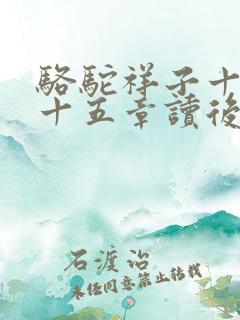 駱駝祥子十
十五章讀後
石渡治
未經同意禁止轉載